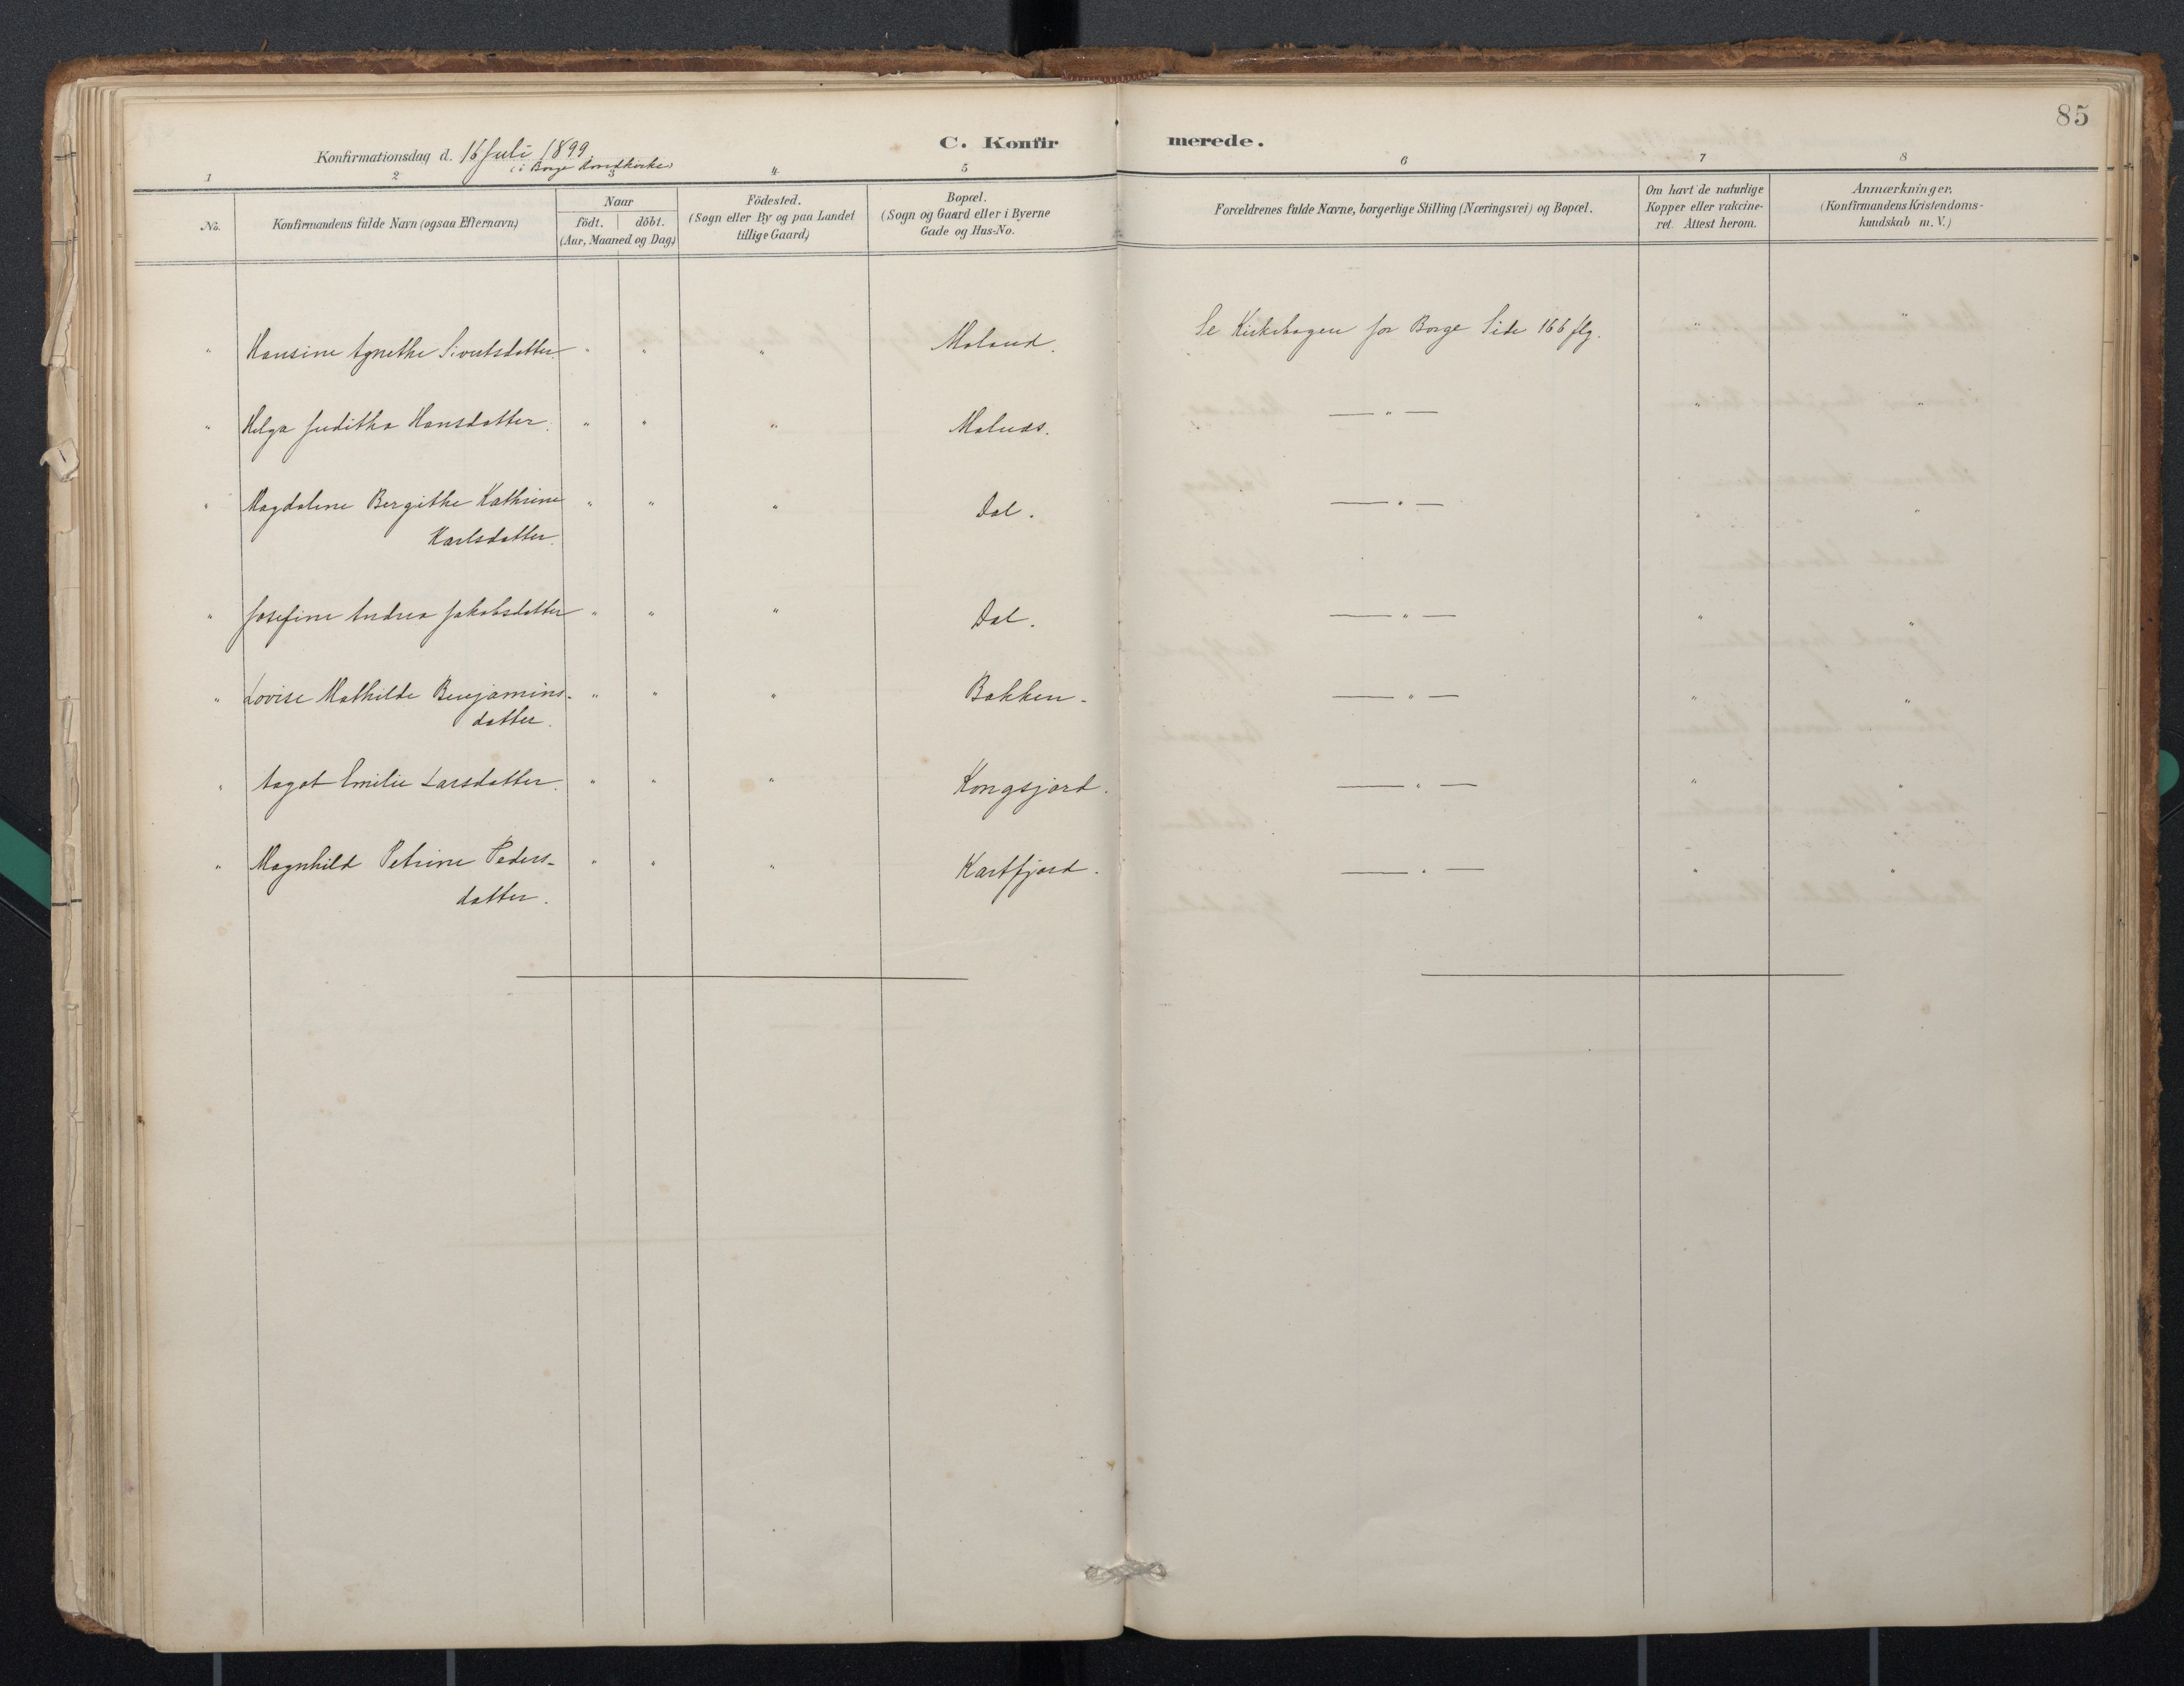 85
C. Konfirmerede.
Konfirmationsdag d. 16 Juli 1899.
(i Borge
1 2 3 4 5 6 7 8
No. Konfirmandens fulde Navn (ogsaa Efternavn) Naar födt. döbt. (Aar, Maaned og Dag) Födested. (Sogn eller By og paa Landet tillige Gaard) Bopæl. (Sogn og Gaard eller i Byerne Gade og Hus-No. Forældrenes fulde Navne, borgerlige Stilling (Næringsvei) og Bopæl. Om havt de naturlige Kopper eller vakcineret. Attest herom. Anmærkninger. (Konfirmandens Kristendomskundskab m. V.)
" Hansine Agnethe Sivertsdatter " " " Moland. Se Kirkebogen for Borge Side 166 flg. " "
" Helga Juditha Hansdatter. " " " Molnes. — " — " "
" Magdalene Bergithe Kathrine " " " Dal. — " — " "
Karlsdatter.
" Josefine Andrea Jakobsdatter " " " Dal. — " — " "
" Lovise Mathilde Benjamins- " " " Bakken. — " — " "
datter.
" Aagot Emilie Larsdatter. " " " Kongsjord. — " — " "
" Magnhild Petrine Peders- " " " Kartfjord. — " — " "
datter.